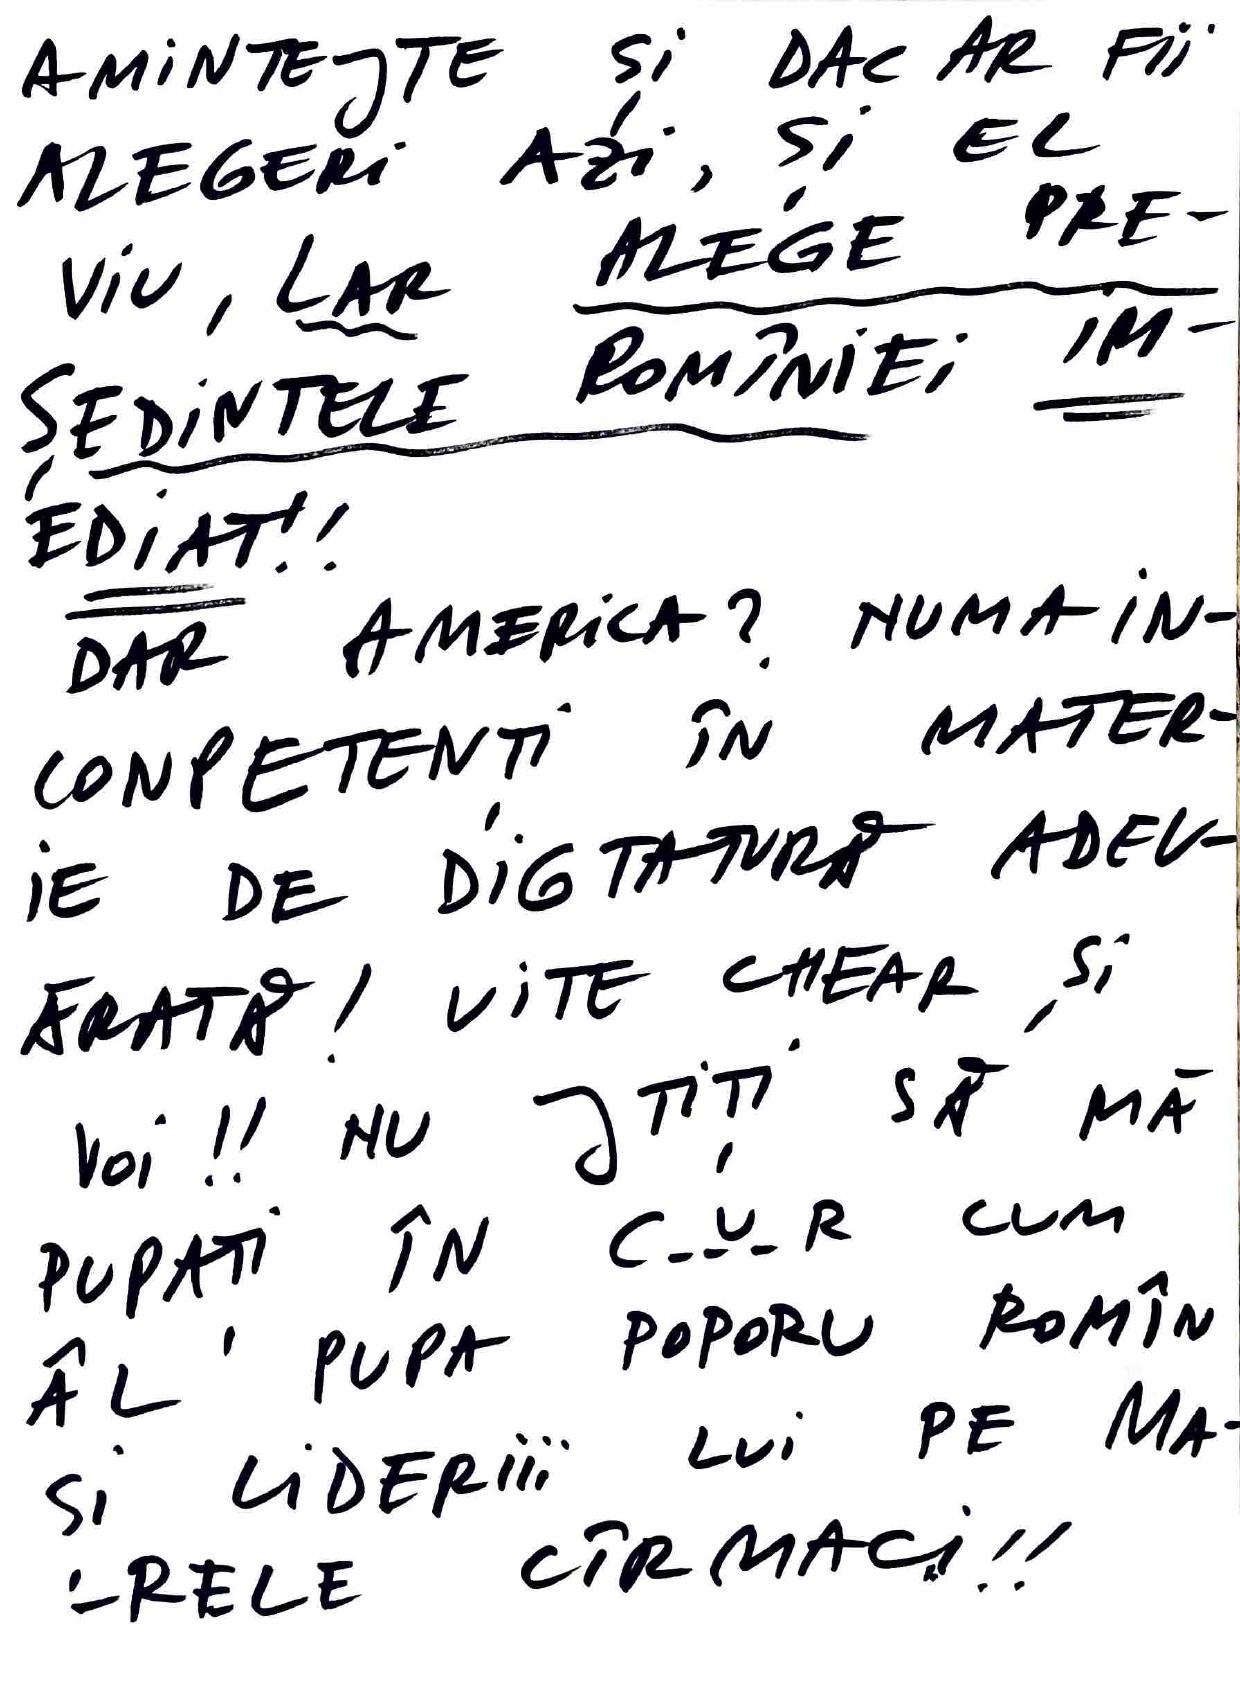 AMINTEȘTE ȘI DAC AR FII
ALEGERI AZI, ȘI EL
VIU, LAR ALEGE PRE-
ȘEDINTELE ROMÎNIEI IM-
EDIAT!!
DAR AMERICA? NUMA IN-
CONPETENȚI ÎN MATER-
IE DE DIGTATURĂ ADEV-
ERATĂ! UITE CHEAR ȘI
VOI!! NU ȘTIȚI SĂ MĂ
PUPAȚI ÎN C_U_R CUM
ÂL PUPA POPORU ROMÎN
ȘI LIDERIII LUI PE MA-
-RELE CÎRMACI!!